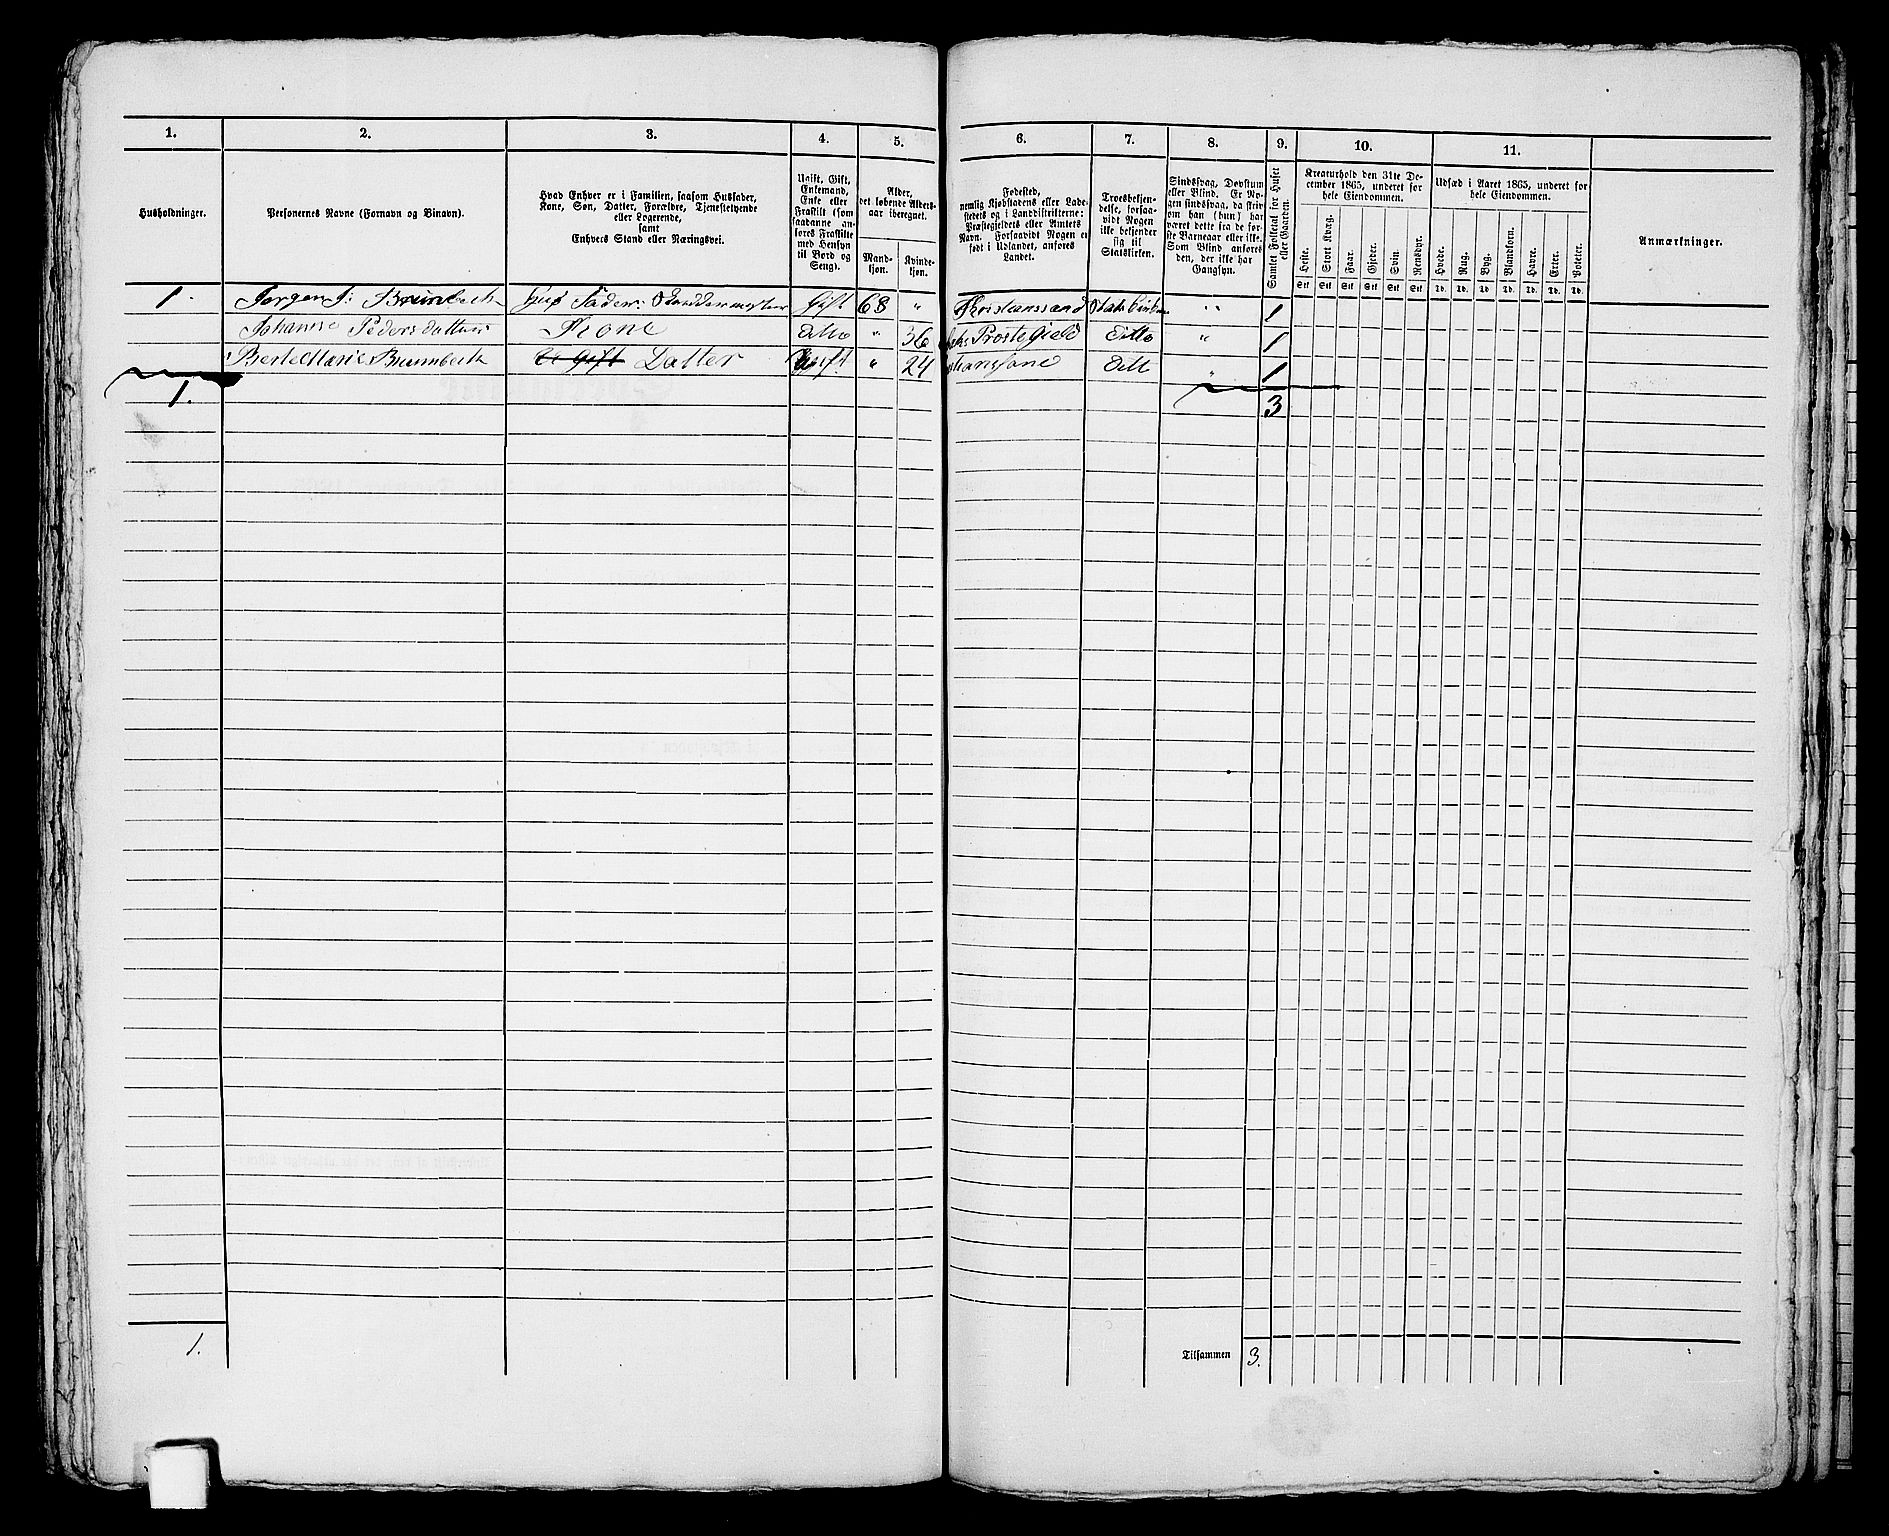 1. 2. 3. 4. 5. 6. 7. 8. 9. 10. 11.
Husholdninger.
Personernes Navne (Fornavn og Binavn).
Hvad Enhver er i Familien, saasom Husfader,
Kone, Søn, Datter, Forældre, Tjenestetyende
eller Logerende,
samt
Enhvers Stand eller Næringsvei.
Ugift, Gift,
Enkemand,
Enke eller
Fraskilt (som
saadanne an-
føres Fraskilte
med Hensyn
til Bord og
Seng).
Alder,
det løbende Alders-
aar iberegnet.
Mand-
kjøn.
Kvinde-
kjøn.
Fødested,
nemlig Kjøbstadens eller Lade-
stedets og i Landdistrikterne:
Præstegjeldets eller Amtets
Navn. Forsaavidt Nogen er
født i Udlandet, anføres
Landet.
Troesbekjen-
delse, forsaa-
vidt Nogen
ikke bekjender
sig til
Statskirken.
Sindssvag, Døvstum
eller Blind. Er No-
gen sindssvag, da skriv
om han (hun) har
været dette fra de før-
ste Barneaar eller ikke.
Som Blind anføres
den, der ikke har
Gangsyn.
Samlet Folketal for Huset
eller Gaarden.
Kreaturhold den 31te De-
cember 1865, underet for
hele Eiendommen.
Heste.
Stort Kvæg.
Faar.
Gjeder.
Svin.
Rensdyr.
Stk Stk Stk Stk Stk Stk
Udsæd i Aaret 1865, underet for
hele Eiendommen.
Hvede.
Rug.
Byg.
Blandkorn.
Havre.
Erter.
Poteter.
Td. Td. Td. Td. Td. Td. Td.
Anmærkninger.
1. Jørgen J: Brumbech Huus Fader: Gift 68 " Christianssand " 1
Johanne Pedersdatter Kone ditto " 36 Ditto " 1
Berte Marie Brumbech Datter Ugift " 24 Ditt " 1
1. 3
1. Tilsammen 3.